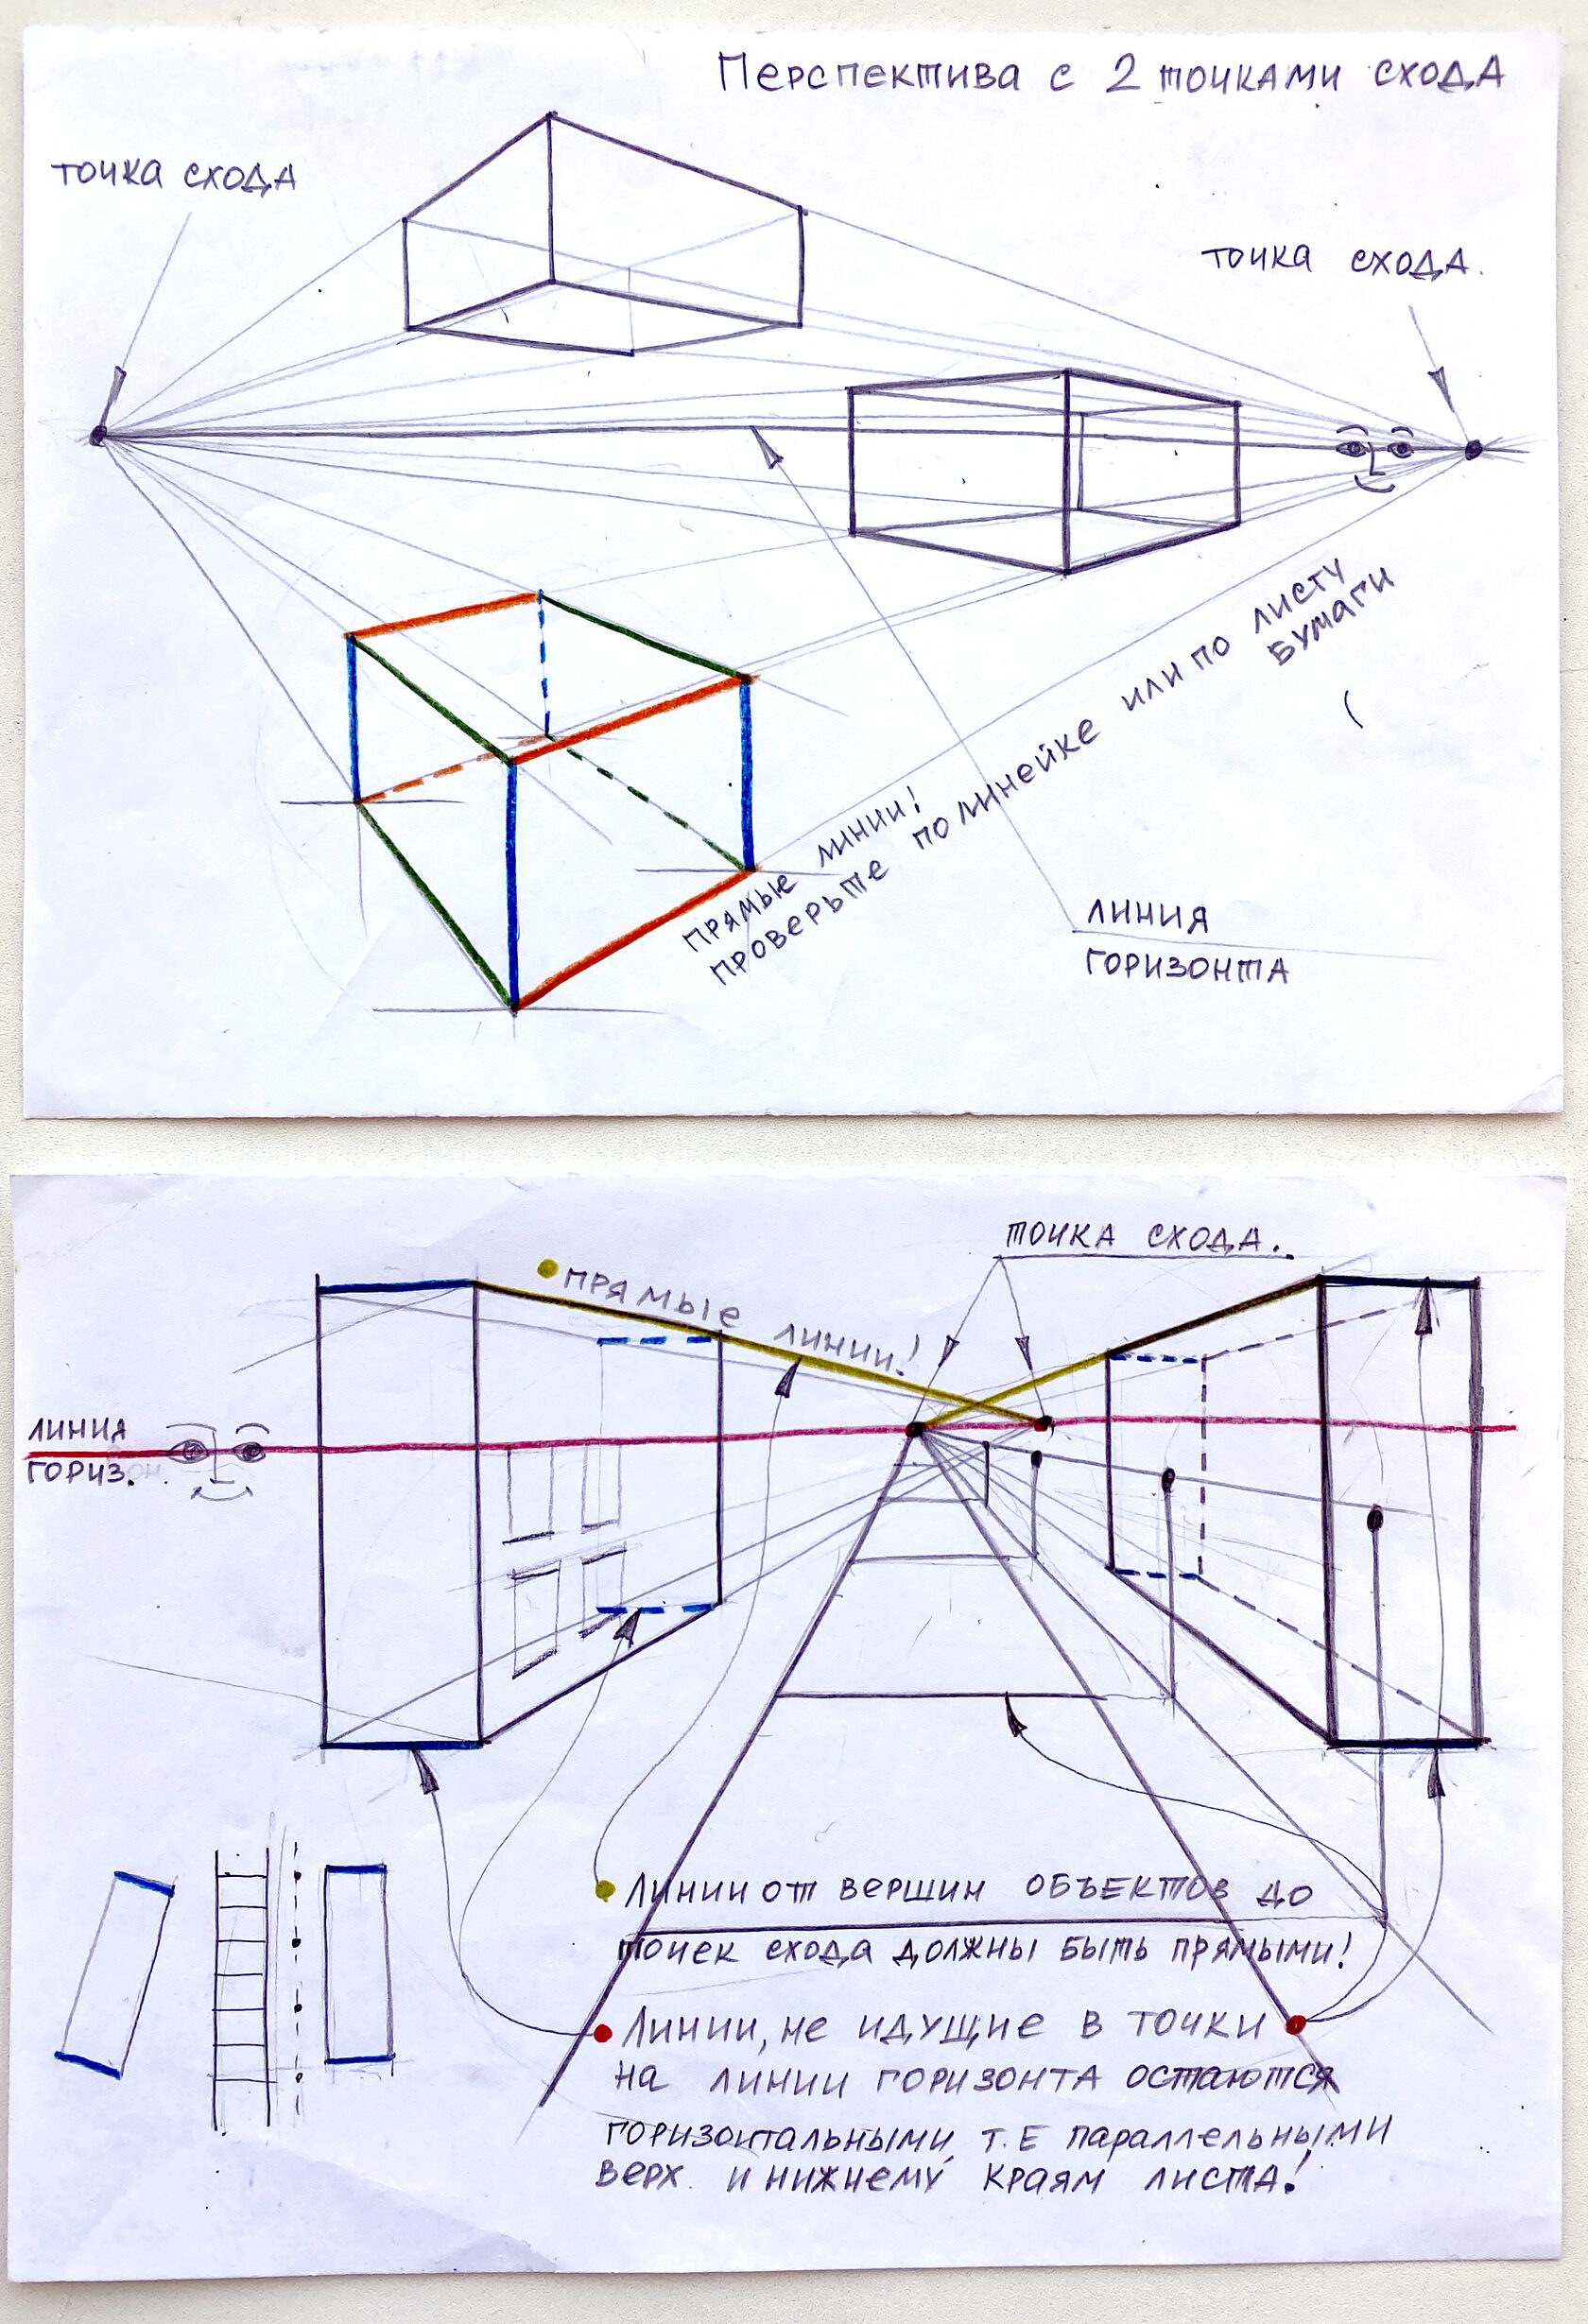 Перспектива с 2 точками схода
точка схода
точка схода.
прямые линии!
проверьте по линейке или по листу
бумаги
линия
горизонта
точка схода.
прямые линии!
линия
гориз.
Линии от вершин объектов до
точек схода должны быть прямыми!
Линии, не идущие в точки
на линии горизонта остаются
горизонтальными, т.е параллельными
верх. и нижнему краям листа!